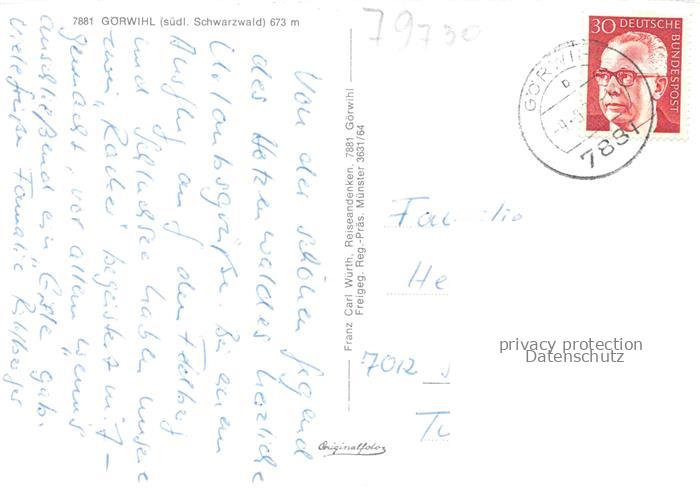 7881 GÖRWIHL (südl. Schwarzwald) 673 m
79730
Von der schönen Gegend
des Hotzenwaldes herzliche
Urlaubsgrüße. Bei einem
Ausflug auf den Feldberg
und Schluchsee haben unsere
zwei "Racker" begeistert mit-
gemacht, vor allem wenn's
anschließend ein "Eisle" gab.
Viele Grüße Familie
Franz Carl Würth, Reiseandenken, 7881 Görwihl
Freigeg. Reg.-Präs. Münster 3631/64
Originalfoto
30 DEUTSCHE
BUNDESPOST
GÖRWIHL
7881
Familie
He
7012
privacy protection
Datenschutz